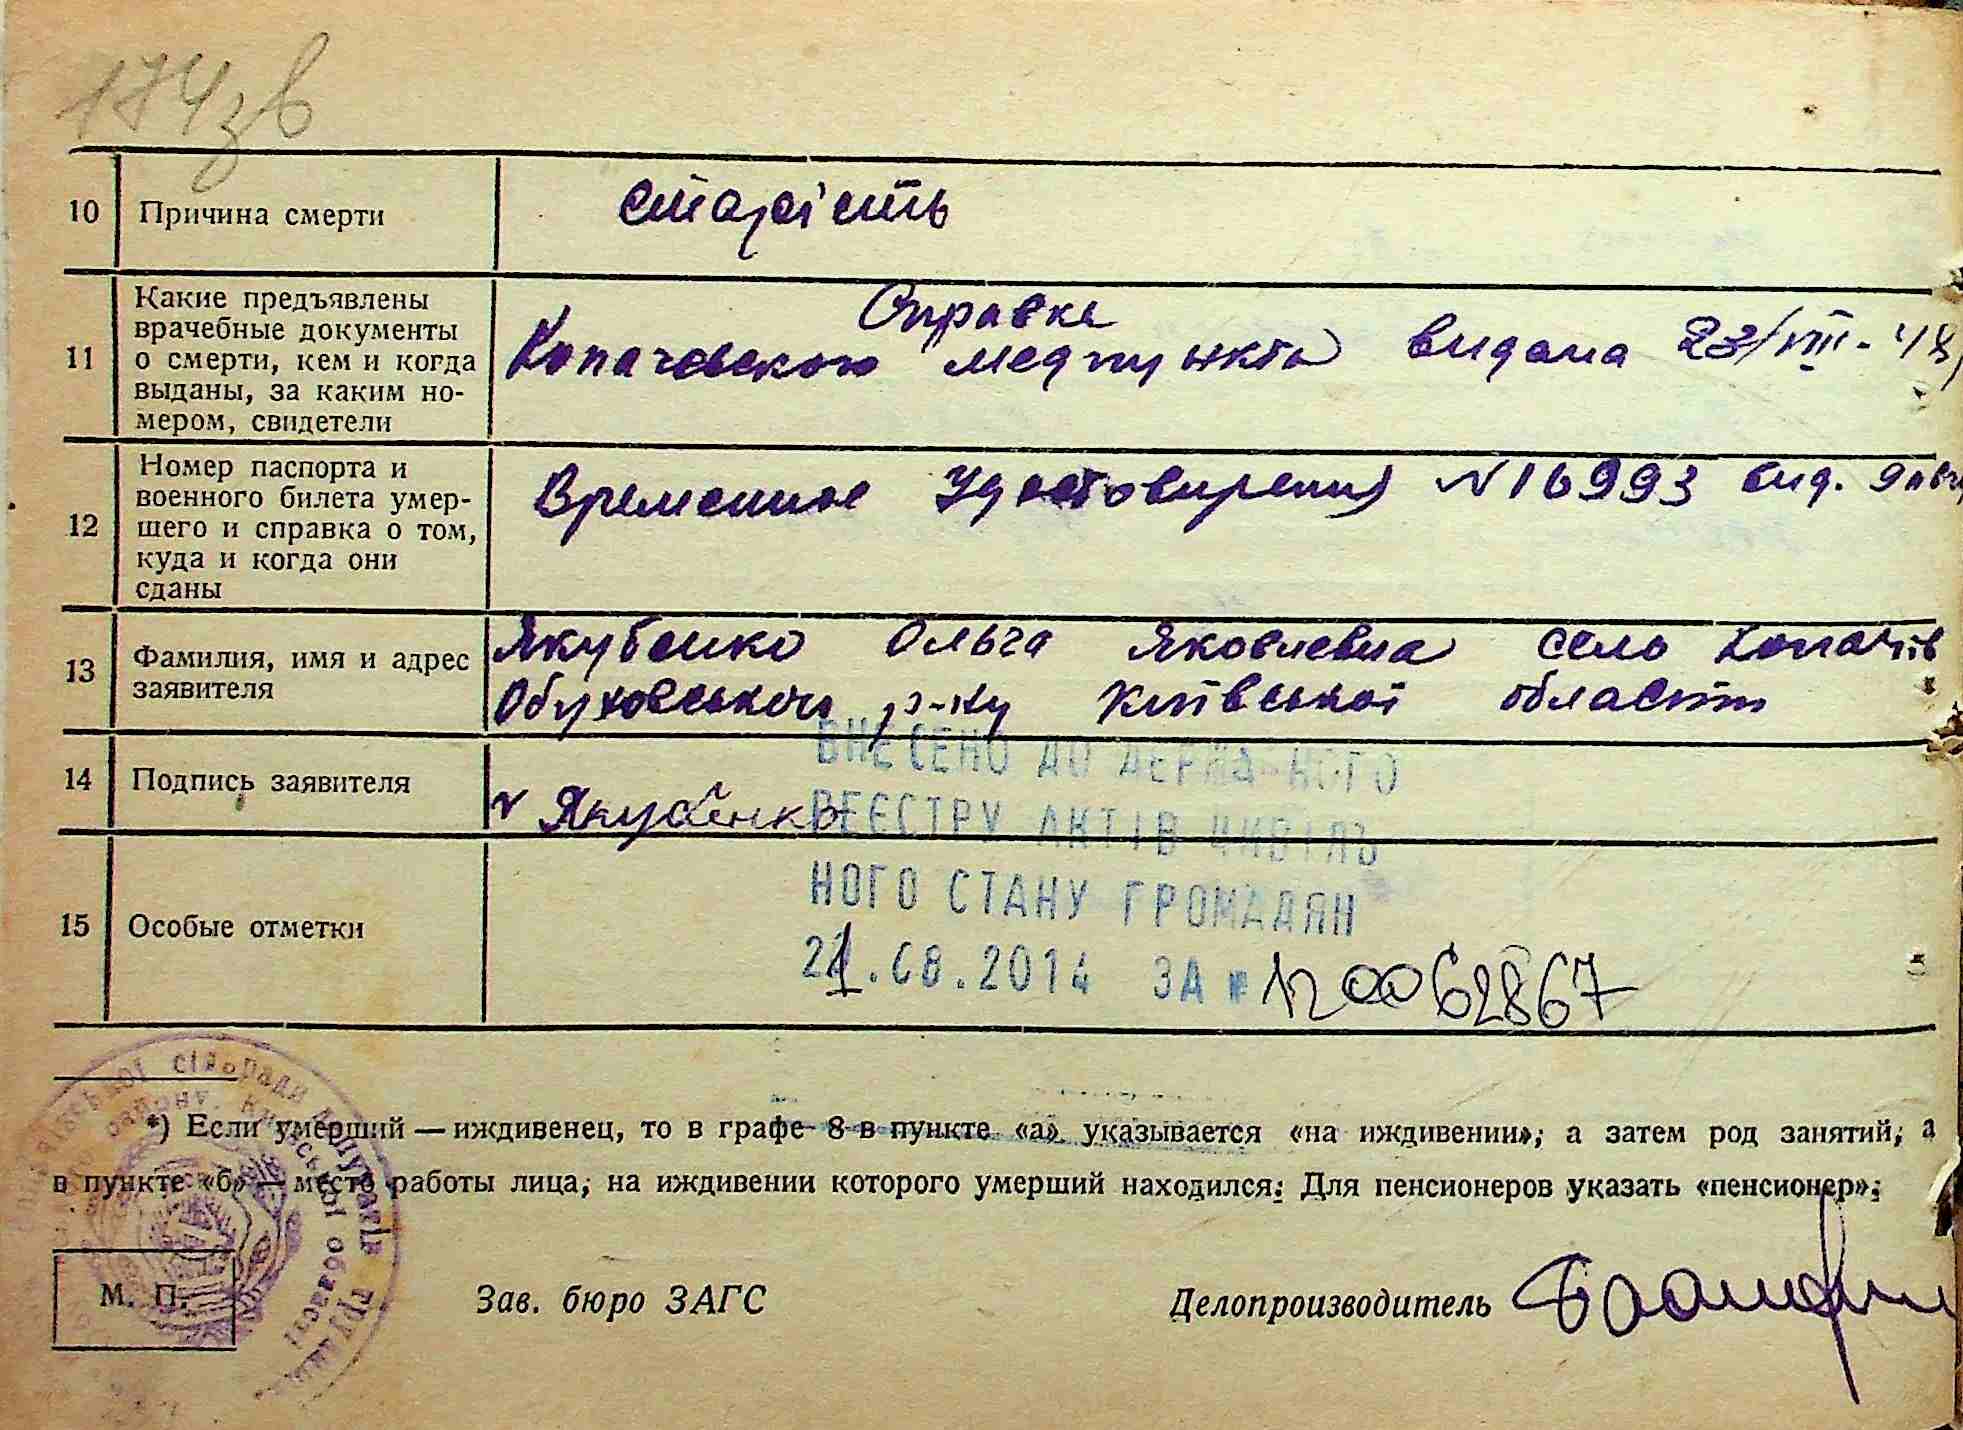 174зв
10 Причина смерти старість
11 Какие предъявлены врачебные документы о смерти, кем и когда выданы, за каким номером, свидетели
Справка
Копачевского медпункта видана 23/VIII-48
12 Номер паспорта и военного билета умершего и справка о том, куда и когда они сданы
Временное Удостовирения N 16993 вид.
13 Фамилия, имя и адрес заявителя
Якубенко Ольга Яковлевна село Копачів
Обуховського р-ну Київської области
14 Подпись заявителя v Якубенко
15 Особые отметки
ВНЕСЕНО ДО ДЕРЖА НОГО
РЕЄСТРУ АКТІВ ЦИВІЛЬ
НОГО СТАНУ ГРОМАДЯН
21.08.2014 ЗА № 120062867
*) Если умерший — иждивенец, то в графе 8 в пункте «а» указывается «на иждивении», а затем род занятий, а
в пункте «б» — место работы лица, на иждивении которого умерший находился. Для пенсионеров указать «пенсионер».
М. П. Зав. бюро ЗАГС Делопроизводитель
сільради депутатів
району, Київської області